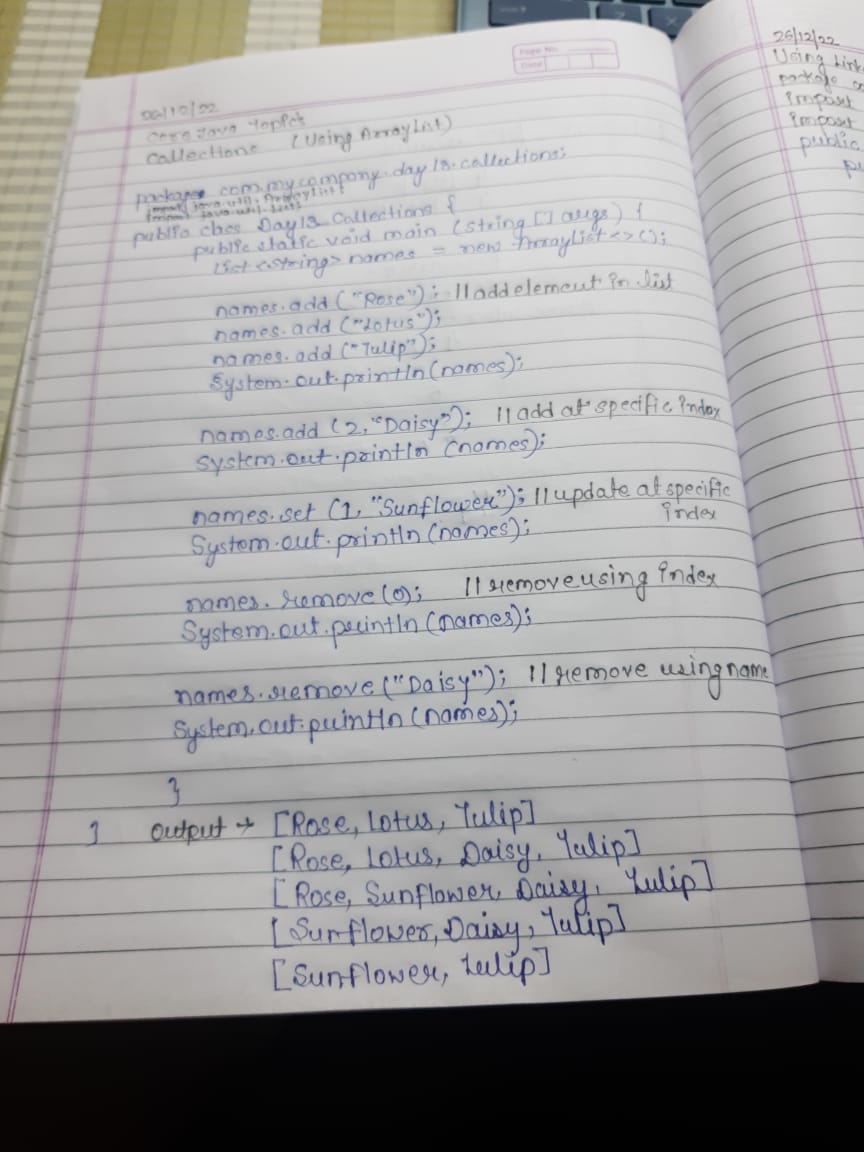 Page No.
Date
26/12/22
Core Java Topics
Collections (Using ArrayList)
package com.mycompany.day13.collections;
import java.util.ArrayList;
import java.util.List;
public class Day13 Collections {
public static void main (String [] args) {
List <String> names = new ArrayList<>();
names.add ("Rose"); // add element in list
names.add ("Lotus");
names.add ("Tulip");
System.out.println(names);
names.add (2, "Daisy"); // add at specific index
System.out.println (names);
names.set (1, "Sunflower"); // update at specific
index
System.out.println(names);
names.remove(0); // remove using index
System.out.println(names);
names.remove("Daisy"); // remove using name
System.out.println(names);
}
} output → [Rose, Lotus, Tulip]
[Rose, Lotus, Daisy, Tulip]
[Rose, Sunflower, Daisy, Tulip]
[Sunflower, Daisy, Tulip]
[Sunflower, Tulip]
26/12/22
Using Link
package co
import
import
public
pu